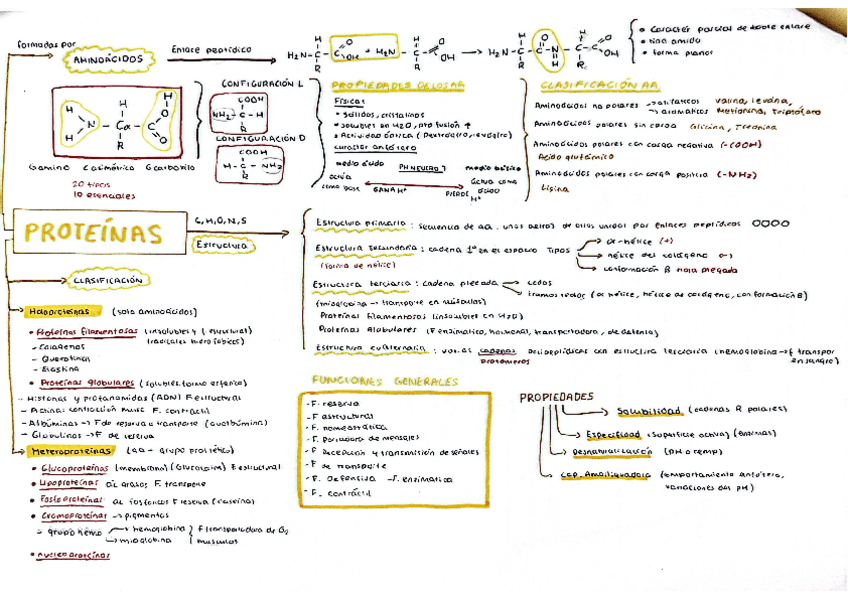 formadas por
AMINOÁCIDOS
Enlace peptídico
H₂N-C-C
H
R
O
OH
+ H₂N
H
C-C
R
O
OH
H₂N-C-C-N-C-C
H
R
O
H
H
R
O
OH
• Carácter parcial de doble enlace
• Tipo amido
• forma planar
H
H
N
H
Cα
R
C
O
O
H
G.amino C.asimétrico G.carboxilo
20 tipos
10 esenciales
CONFIGURACIÓN L
COOH
NH₂-C-H
R
CONFIGURACIÓN D
COOH
H-C-NH₂
R
PROPIEDADES DE LOS AA
Físicas
• sólidos, cristalinos
• solubles en H₂O, pto fusión ↑
• Actividad óptica (Dextrógiro, levógiro)
carácter anfótero
medio ácido
PH NEUTRO 7
medio básico
actúa
como base
GANA H⁺
PIERDE H⁺
actúa como
ácido
CLASIFICACIÓN AA
Aminoácidos no polares → alifáticos valina, leucina,
→ aromáticos Metionina, Triptófano
Aminoácidos polares sin carga Glicina, Treonina
Aminoácidos polares con carga negativa (-COOH)
Ácido glutámico
Aminoácidos polares con carga positiva (-NH₂)
Lisina
PROTEÍNAS
C, H, O, N, S
Estructura
Estructura primaria: secuencia de aa. unos detrás de otros unidos por enlaces peptídicos
Estructura secundaria: cadena 1ª en el espacio Tipos
(forma de hélice)
α-hélice (+)
hélice del colágeno (-)
conformación β hoja plegada
Estructura terciaria: cadena plegada → codos
tramos rectos (α hélice, hélice de colágeno, conformación B)
(mioglobina → transporte en músculos)
Proteínas Filamentosas (insolubles en H₂O)
Proteínas globulares (F enzimática, hormonal, transportadora, de defensa)
Estructura cuaternaria: varias cadenas polipeptídicas con estructura terciaria (hemoglobina → f transpor
protómeros
en sangre)
CLASIFICACIÓN
Holoproteínas (solo aminoácidos)
• Proteínas filamentosas (insolubles y f estructural)
(radicales hidrofóbicos)
- Colágenos
- Queratinas
- Elastina
• Proteínas globulares (solubles, forma esférica)
- Histonas y protaminas (ADN) F. estructural
- Actina: contracción musc F. contráctil
- Albúminas → F de reserva o transporte (ovoalbúmina)
- Globulinas → F de reserva
Heteroproteínas (AA + grupo prostético)
• Glucoproteínas (membrana) (Glucocálix) F. estructural
• Lipoproteínas ác grasos F. transporte
• Fosfoproteínas ác fosfórico F reserva (caseína)
• Cromoproteínas → pigmentos
- grupo hemo
hemoglobina
mioglobina
F transportadora de O₂
músculos
• nucleoproteínas
FUNCIONES GENERALES
- F. reserva
- F estructural
- F. homeostática
- F. portadora de mensajes
- F. Recepción y transmisión de señales
- F de transporte
- F. Defensiva - F. enzimática
- F. contráctil
PROPIEDADES
Solubilidad (cadenas R polares)
Especificidad (superficie activa) (enzimas)
Desnaturalización (PH o temp)
Cap. Amortiguadora (comportamiento anfótero,
variaciones del PH)